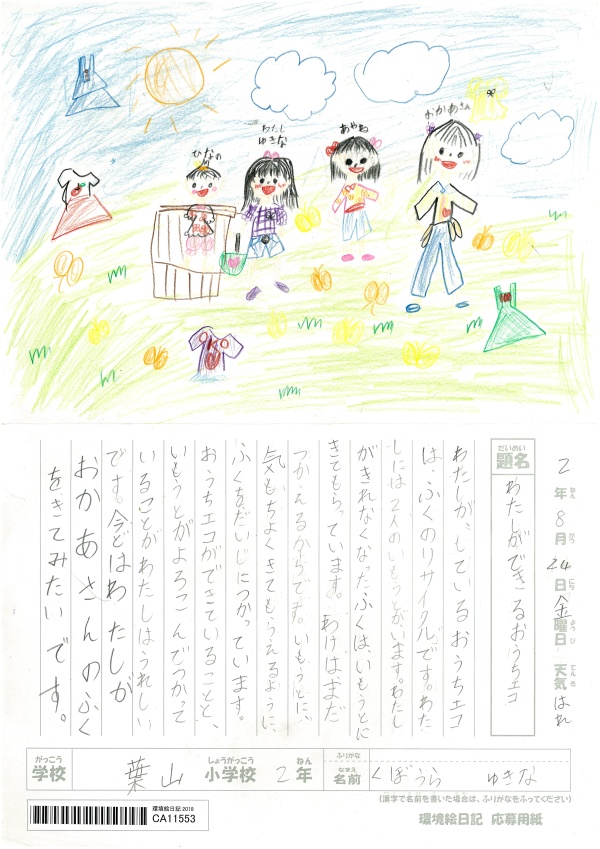 ひなの
わたし
ゆきな
あやね
おかあさん
2年ねん8月がつ24日にち金曜日ようび 天気てんきはれ
だいめい
題名
わたしができるおうちエコ
わたしが、しているおうちエコ
は、ふくのリサイクルです。わた
しには2人のいもうとがいます。わたし
がきれなくなったふくは、いもうとに
きてもらっています。わけは、まだ
つかえるからです。いもうとに、
気もちよくきてもらえるように、
ふくをだいじにつかっています。
おうちエコができていることと、
いもうとがよろこんでつかって
いることがわたしはうれしい
です。今どはわたしが
おかあさんのふく
をきてみたいです。
がっこう しょうがっこう ねん ふりがな
学校 葉山 小学校 2年 なまえ 名前 くぼうら ゆきな
(漢字で名前を書いた場合は、ふりがなをふってください)
環境絵日記2018
CA11553
環境絵日記 応募用紙